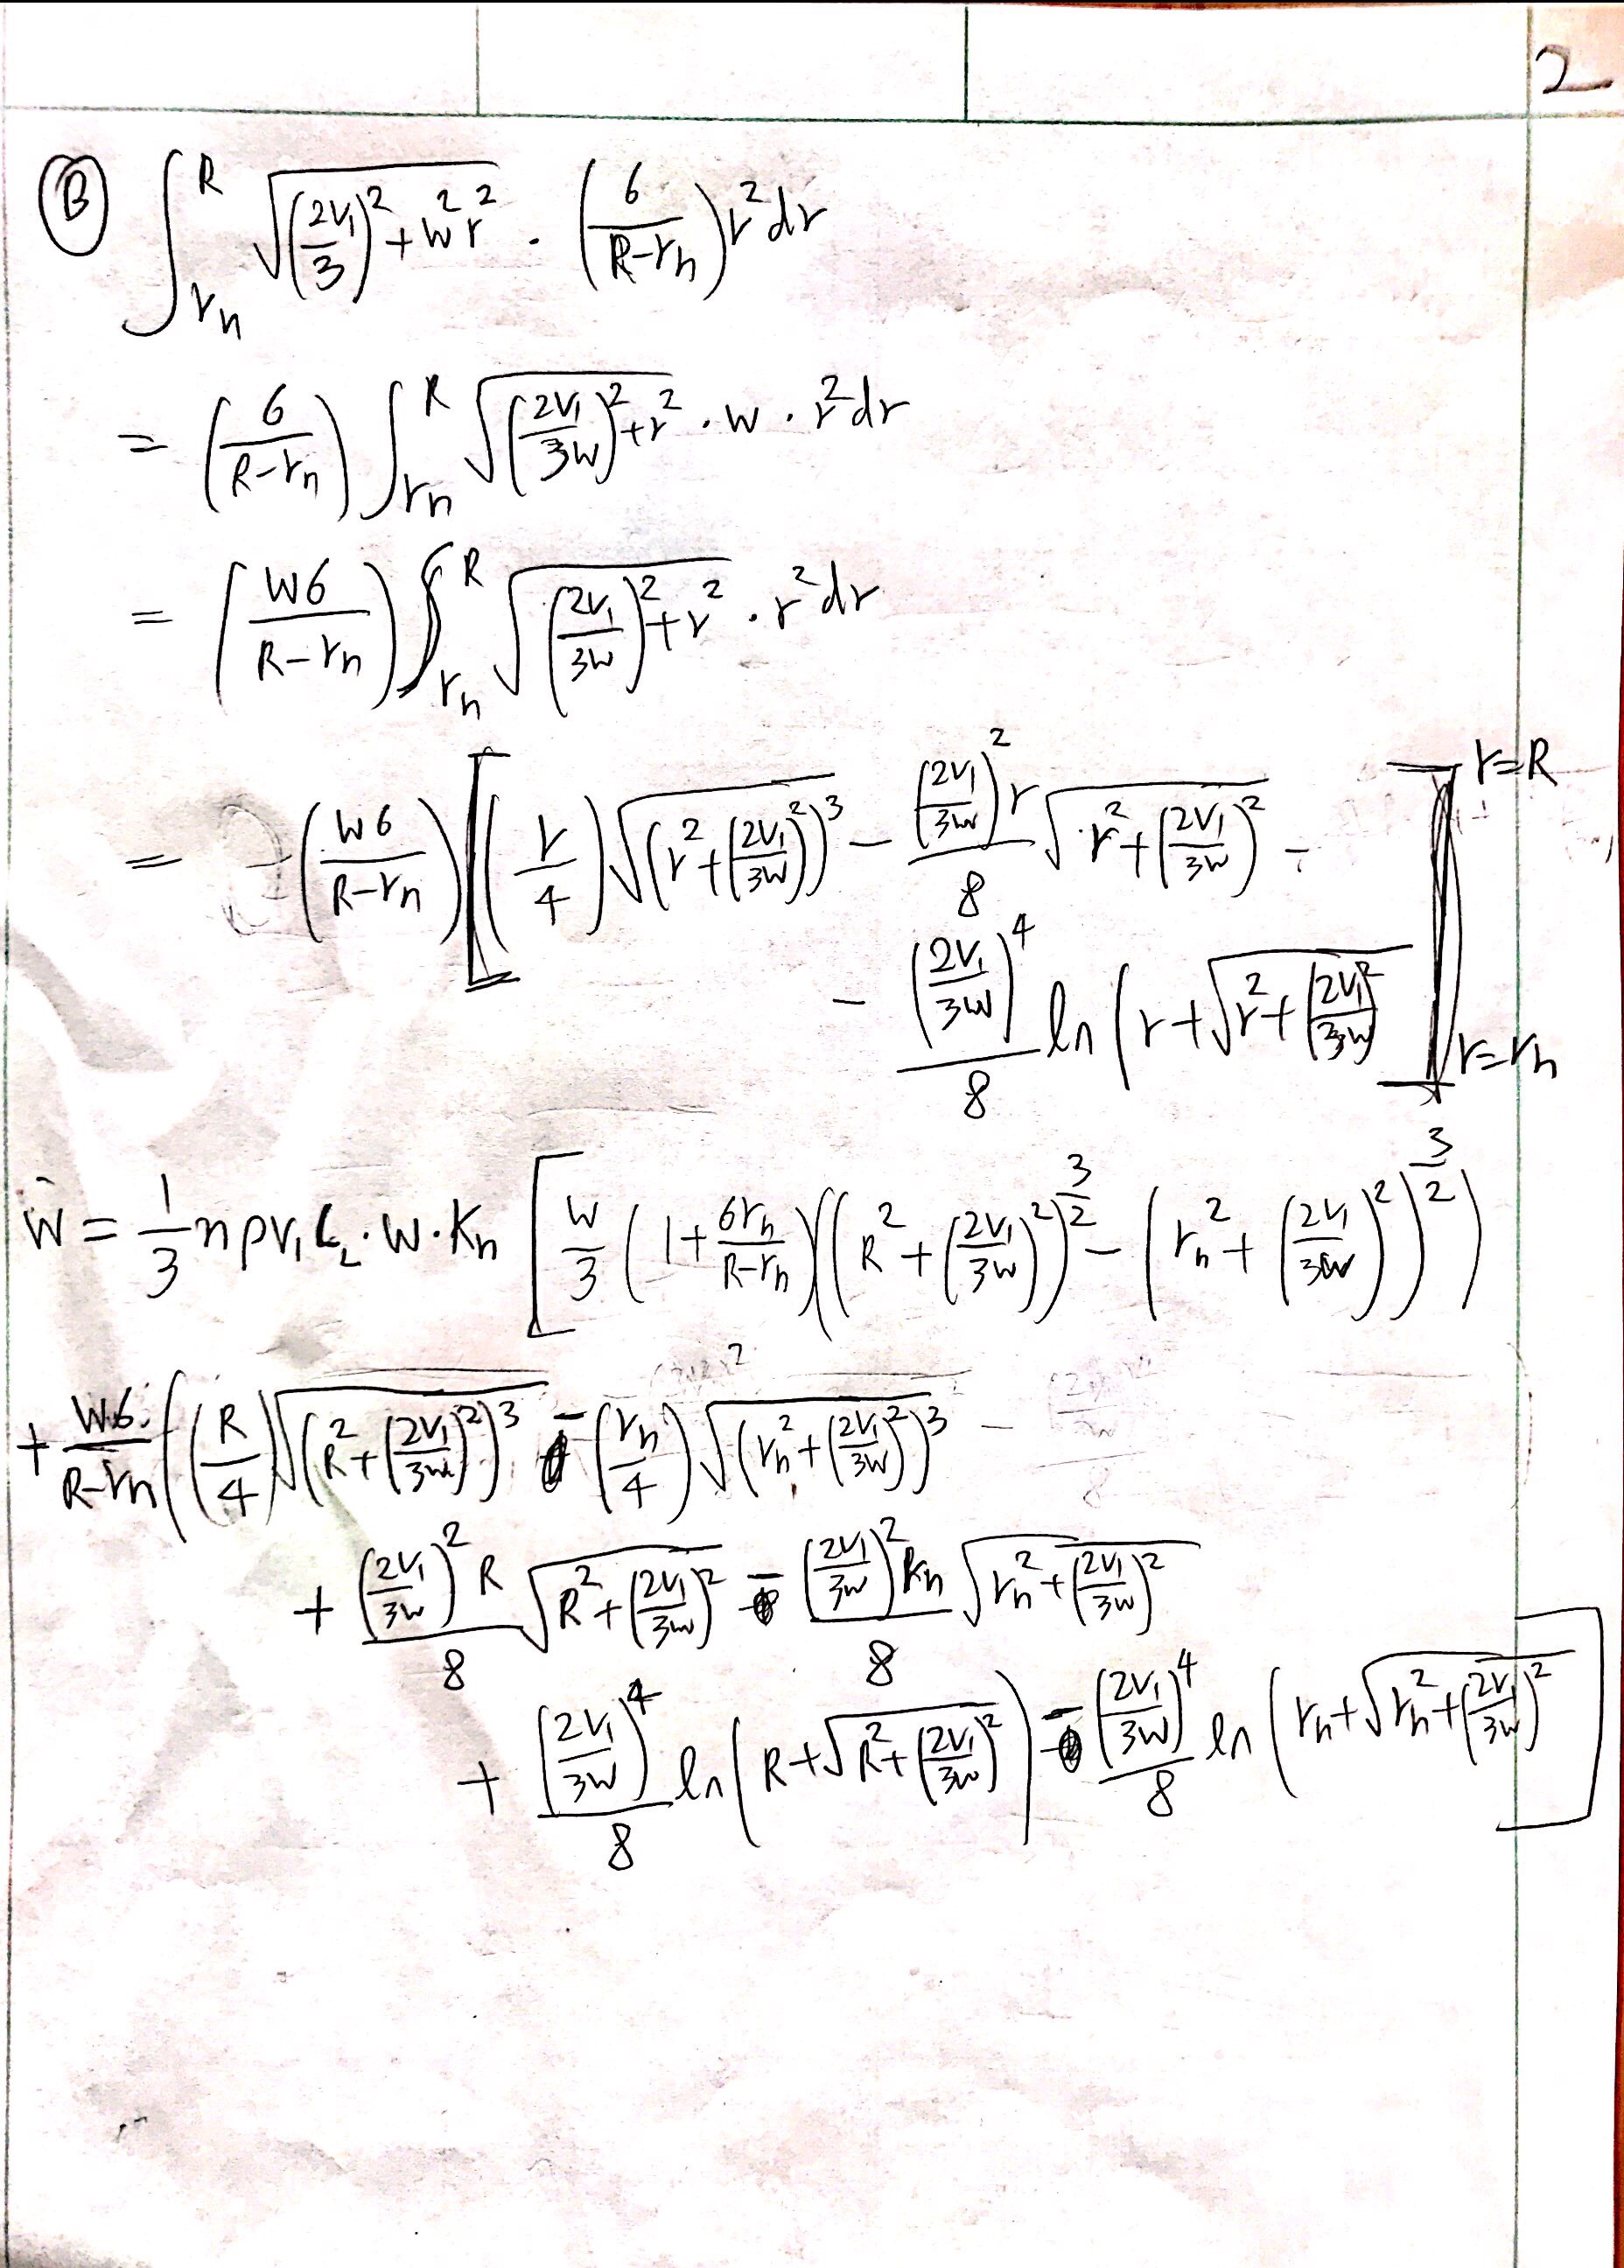 2
Ⓑ ∫_{rₙ}^{R} √((2V₁/3)² + w²r²) · (6/(R-rₙ)) r² dr
= (6/(R-rₙ)) ∫_{rₙ}^{R} √((2V₁/3w)² + r²) · w · r² dr
= (w6/(R-rₙ)) ∫_{rₙ}^{R} √((2V₁/3w)² + r²) · r² dr
= (w6/(R-rₙ)) [(r/4) √((r² + (2V₁/3w)²)³) - ((2V₁/3w)² r/8) √(r² + (2V₁/3w)²) -
- ((2V₁/3w)⁴/8) ln(r + √(r² + (2V₁/3w)²) ]_{r=rₙ}^{r=R}
Ẇ = (1/3) n ρ V₁ C₂ · w · Kₙ [ (w/3) (1 + 6rₙ/(R-rₙ)) ((R² + (2V₁/3w)²)^{3/2} - (rₙ² + (2V₁/3w)²)^{3/2})
+ (w6/(R-rₙ)) ((R/4) √((R² + (2V₁/3w)²)³) - (rₙ/4) √((rₙ² + (2V₁/3w)²)³)
+ ((2V₁/3w)² R/8) √(R² + (2V₁/3w)²) - ((2V₁/3w)² Rₙ/8) √(rₙ² + (2V₁/3w)²)
+ ((2V₁/3w)⁴/8) ln(R + √(R² + (2V₁/3w)²)) - ((2V₁/3w)⁴/8) ln(rₙ + √(rₙ² + (2V₁/3w)²) ]